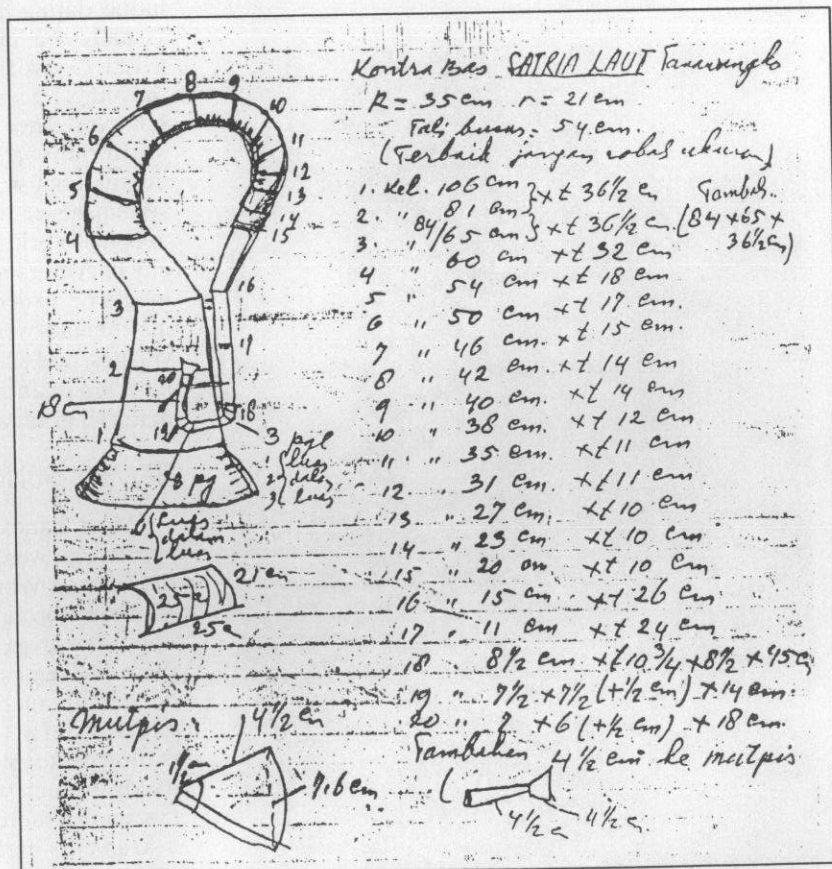 Kontra Bas SATRIA LAUT
R = 35 cm r = 21 cm
Tali busur = 54 cm.
(Terbaik jangan robah ukuran)
1. Kel. 106 cm } x t 36½ cm Tambah.
2. " 81 cm } x t 36½ cm (84 x 65 x 36½ cm)
84/65 cm
3. " 60 cm x t 32 cm
4 " 54 cm x t 18 cm
5 " 50 cm x t 17 cm.
6 " 46 cm. x t 15 cm.
7 " 42 cm. x t 14 cm
8 " 40 cm. x t 14 cm
9 " 38 cm. x t 12 cm
10 " 35 cm. x t 11 cm
11 " 31 cm. x t 11 cm
12 " 27 cm. x t 10 cm
13 " 23 cm x t 10 cm
14 " 20 cm x t 10 cm
15 " 15 cm x t 26 cm
16 " 11 cm x t 24 cm
17 "
18 " 8½ cm x t 10¾ x 8½ x 45 cm
19 " 7½ x 7½ (+½ cm) x 14 cm.
20 " 7 x 6 (+½ cm) x 18 cm.
Tambahan 4½ cm ke mulpis
4½ c
4½ c
1
2
3
4
5
6
7
8
9
10
11
12
13
14
15
16
17
18
19
20
18 c
3 pjl
1 luar
2 dalam
3 luar
8 pj
luar
dalam
luar
21 cm
25 c
25 c
Mulpis:
4½ cm
7,6 cm